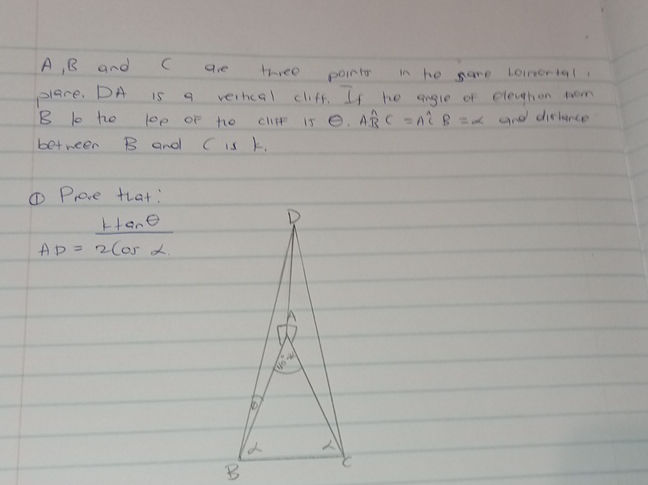 A, B and C are three points in the same horizontal
plane. DA is a vertical cliff. If the angle of elevation from
B to the top of the cliff is θ. AB̂C = AĈB = α and distance
between B and C is k.
① Prove that:
ktanθ
AD = 2Cos α.
D
A
θ
α
α
B
C